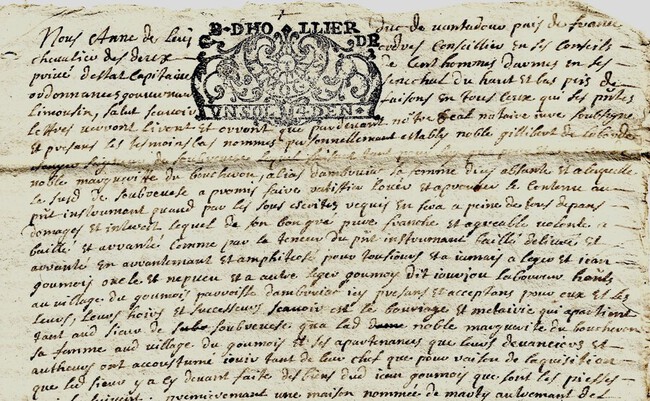 Nous Anne de Levis duc de vantadour pair de france
chevalier des deux ordres Conseillier en ses Conseils
privé destat Capitaine de Cent hommes darmes en ses
ordonnances gouverneur senechal du haut et bas pais de
Limousin, salut scavoir faisons a Tous Ceux qui ses pntes
lettres verront liront et orront que pardevant nostre Real notaire jure soubsigne
et presans les tesmoins bas nommes personnellement estably noble gillibert
B-DHO LLIER
DE
VN SOL LE DEN
noble marguerite du boucheron, alias dambruia sa femme dicy absante et a laquelle
Le susd de soubveuse a promis faire rattiffier louer et aprouver le contenu au
pnt instrument quand par les sous escrites requis en sera a peine de tous depans
domages et interest lequel de son bon gre pure franche et agreable volonte a
baillé et arranté comme par la teneur du pnt instrumant baille delivre et
arrante en arrantemant et amphiteose pour tousjours et a jamais a leger et jean
goumois oncle et nepveu et a autre leger goumois dit laboureur
au village du goumois parroisse dambruiar icy presans et acceptans pour eux et les
leurs, leurs hoirs et successeurs scavoir est le bouriage et metairie qui apartient
tant aud sieur de soubveuse qua lad dame noble marguerite du boucheron
sa femme aud village du goumois et ses apartenances que leurs devanciers et
autheurs ont accoustumé jouir tant de leur chef que pour raison de laquisition
que led sieur y a cy devant faite des biens dud jean goumois que sont les piesses
premierement une maison nommée de marty autrement de